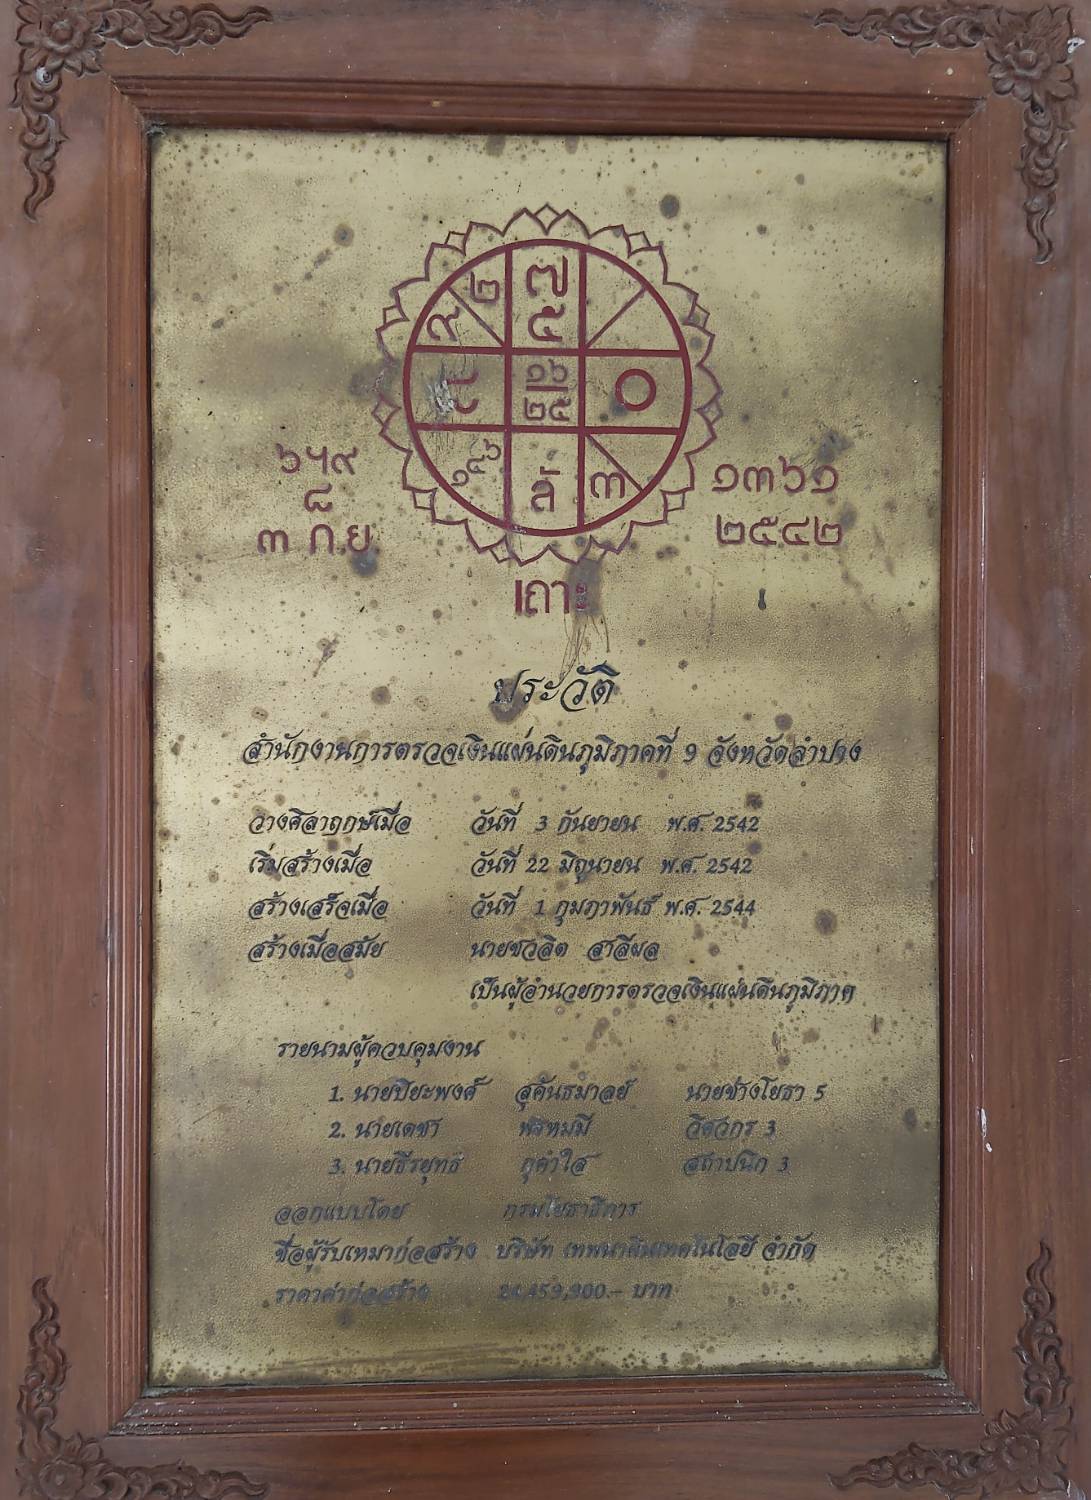 ๒ ๗
๙ ๕
๘ ๐
ลั ๓
๖ ฯ ๙ ๑๓๖๑
๘ ๒๕๔๒
๓ ก.ย.
เถาะ
ประวัติ
สำนักงานการตรวจเงินแผ่นดินภูมิภาคที่ 9 จังหวัดลำปาง
วางศิลาฤกษ์เมื่อ วันที่ 3 กันยายน พ.ศ. 2542
เริ่มสร้างเมื่อ วันที่ 22 มิถุนายน พ.ศ. 2542
สร้างเสร็จเมื่อ วันที่ 1 กุมภาพันธ์ พ.ศ. 2544
สร้างเมื่อสมัย นายชวลิต สาลีผล
เป็นผู้อำนวยการตรวจเงินแผ่นดินภูมิภาค
รายนามผู้ควบคุมงาน
1. นายปิยะพงศ์ สุคันธมาลย์ นายช่างโยธา 5
2. นายเดชา พรหมมี วิศวกร 3
3. นายธีรยุทธ กูคำใส สถาปนิก 3
ออกแบบโดย กรมโยธาธิการ
ชื่อผู้รับเหมาก่อสร้าง บริษัท เทพนาคินเทคโนโลยี จำกัด
ราคาค่าก่อสร้าง 24,459,900.- บาท